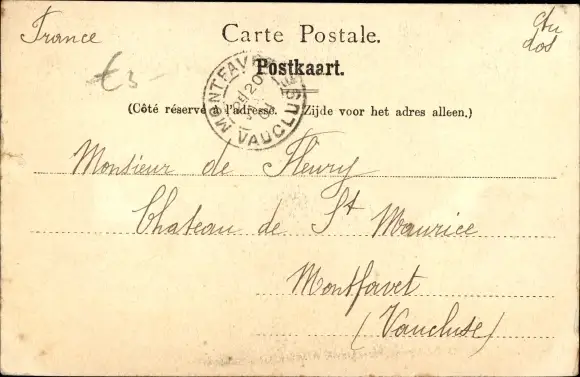 France
Carte Postale.
Postkaart.
€3-
(Côté réservé à l'adresse. Zijde voor het adres alleen.)
MONTFAVET
VAUCLUSE
Monsieur de Fleury
Chateau de St Maurice
Montfavet
(Vaucluse)